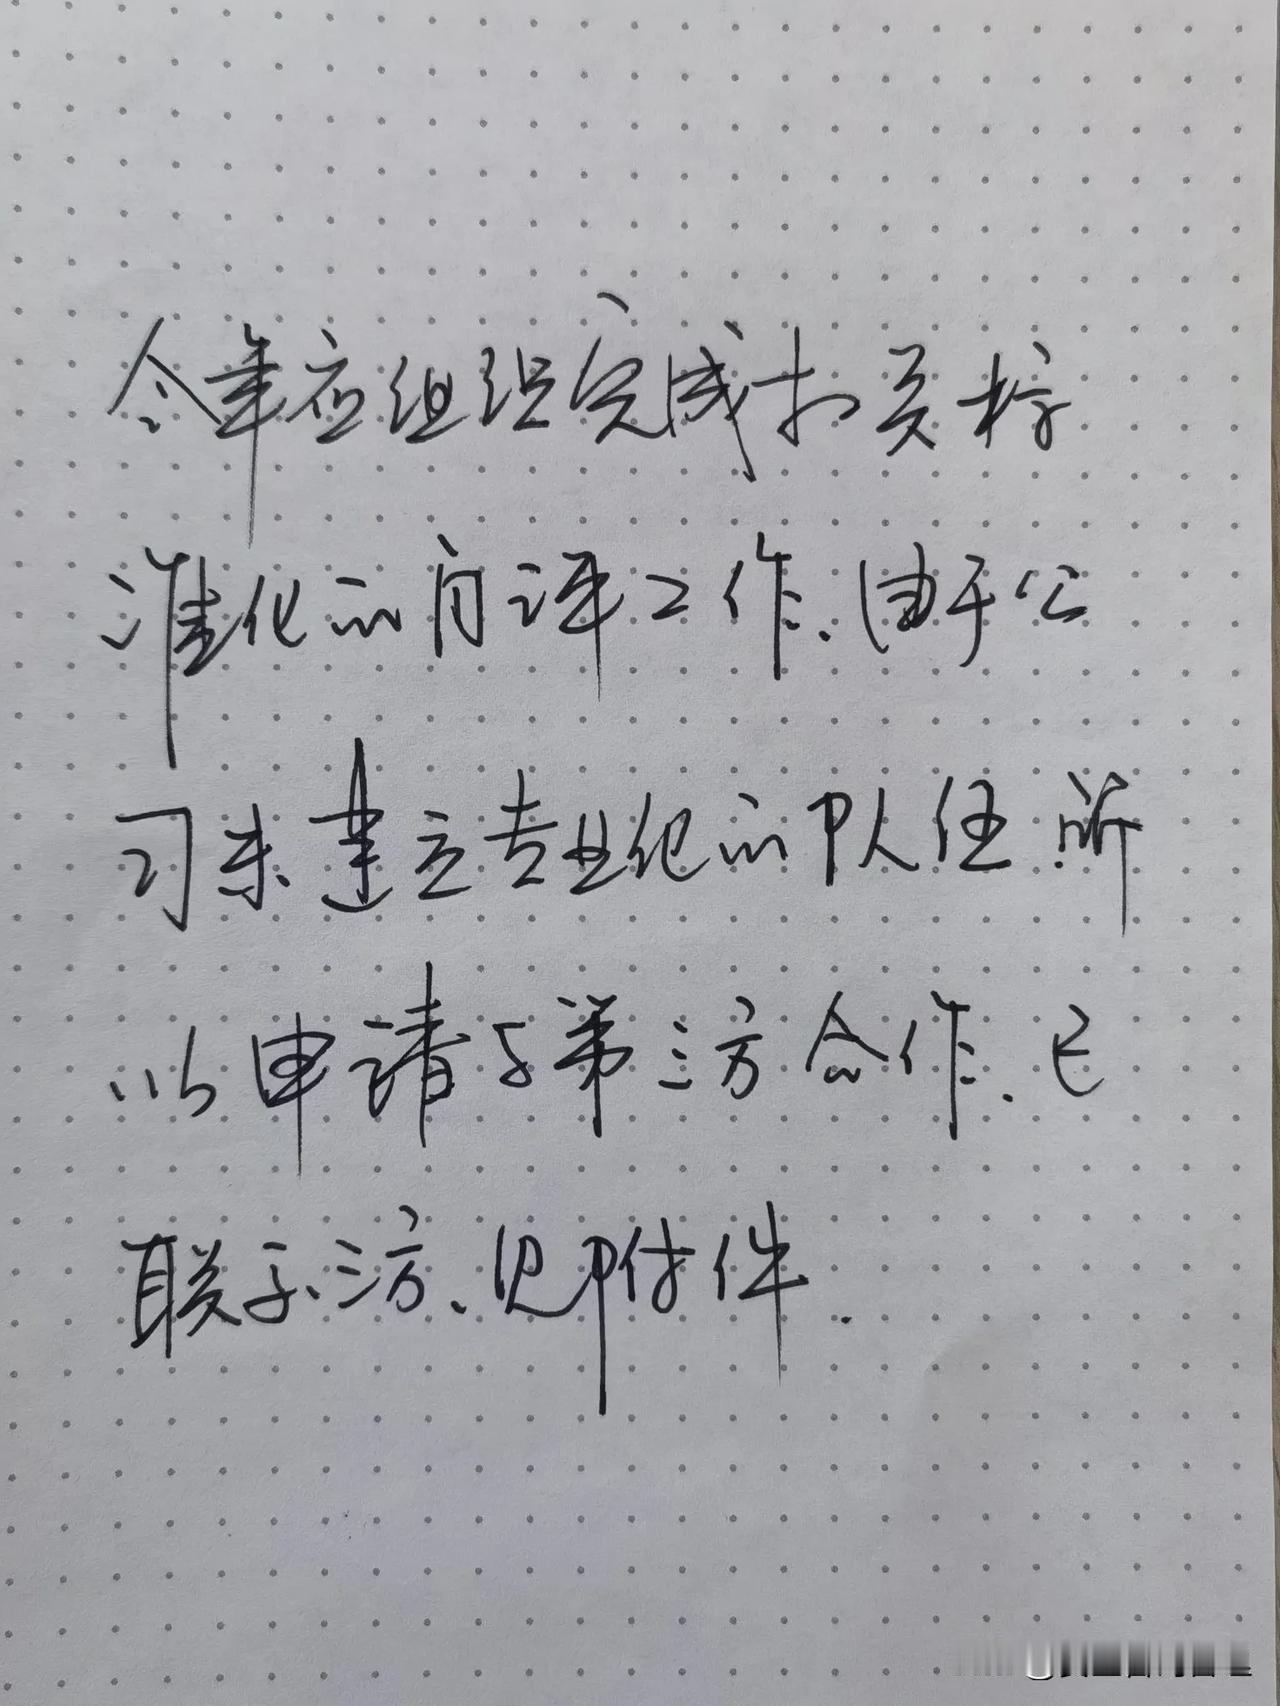 今年应组织完成扣员标
准化的自评工作、由于公
司未建立专业化的队伍 所
以申请与第三方合作、已
联系、三方、见附件.